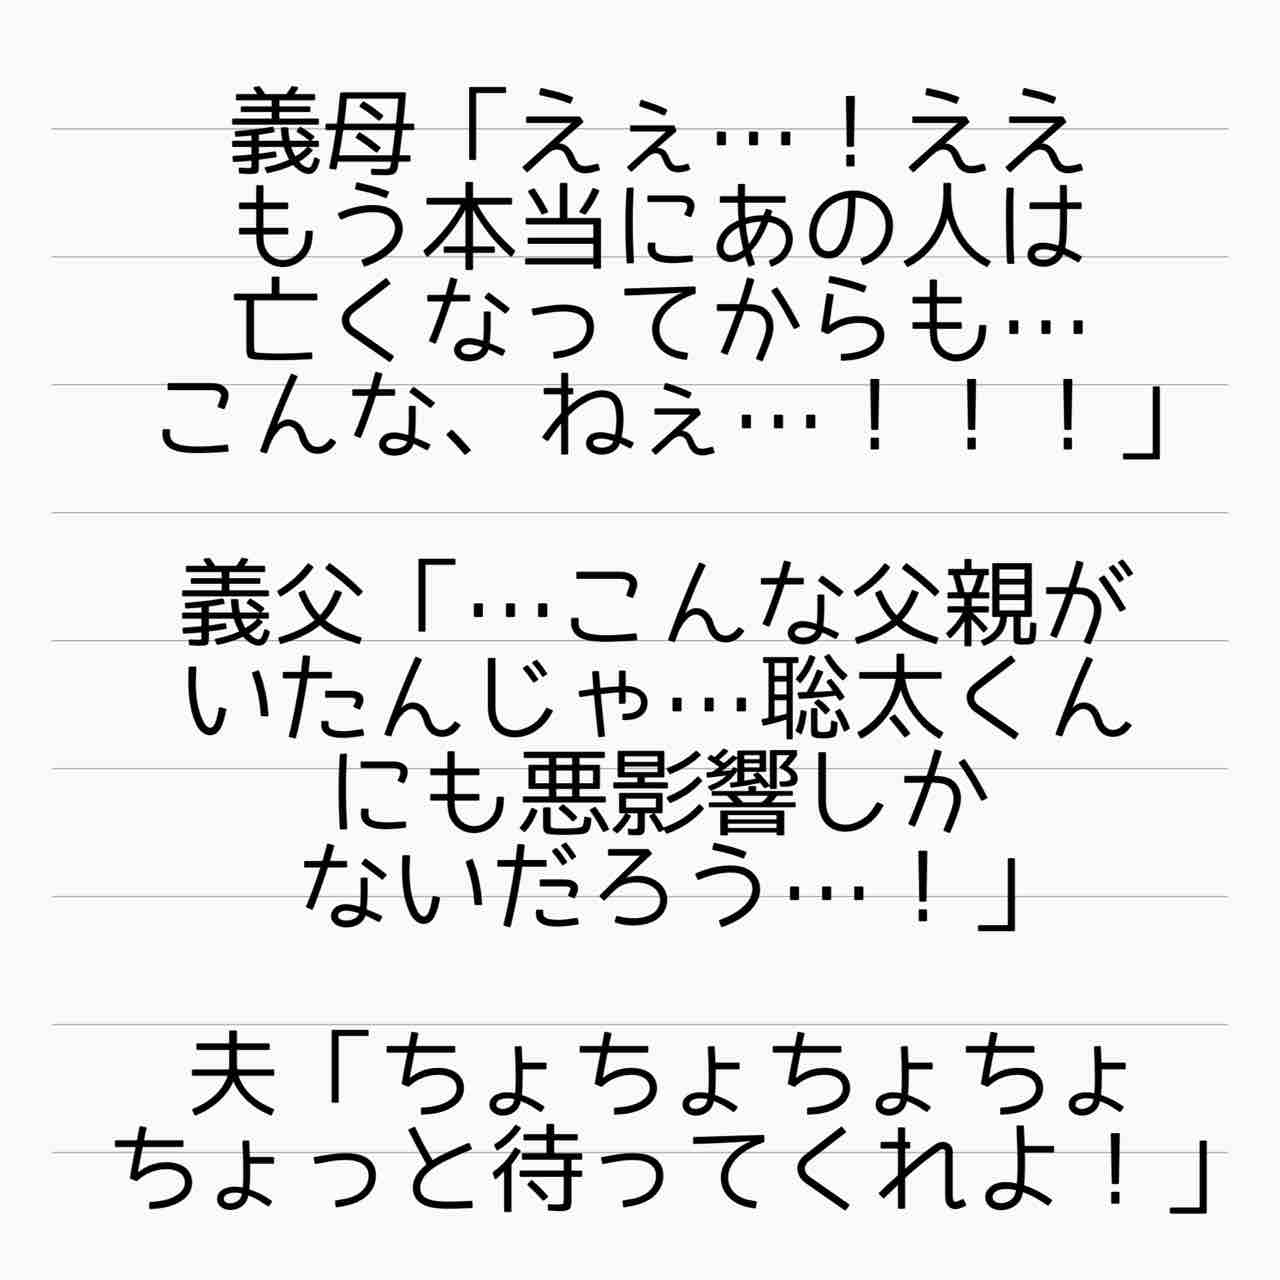 義母「えぇ…！ええ
もう本当にあの人は
亡くなってからも…
こんな、ねぇ…！！！」
義父「…こんな父親が
いたんじゃ…聡太くん
にも悪影響しか
ないだろう…！」
夫「ちょちょちょちょ
ちょっと待ってくれよ！」